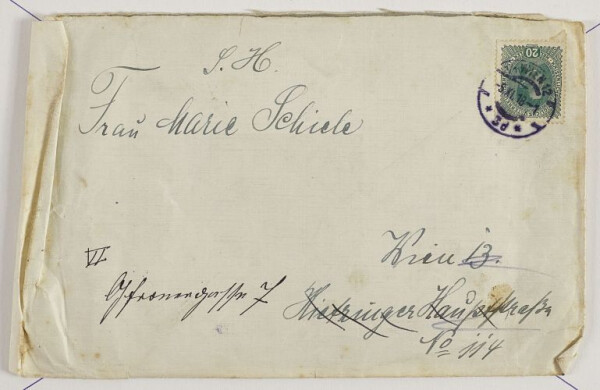 S. H.
Frau Marie Schiele
20
WIEN 12
Wien 13.
VI
Gfrornergasse 7
Hietzinger Hauptstraße
No 114